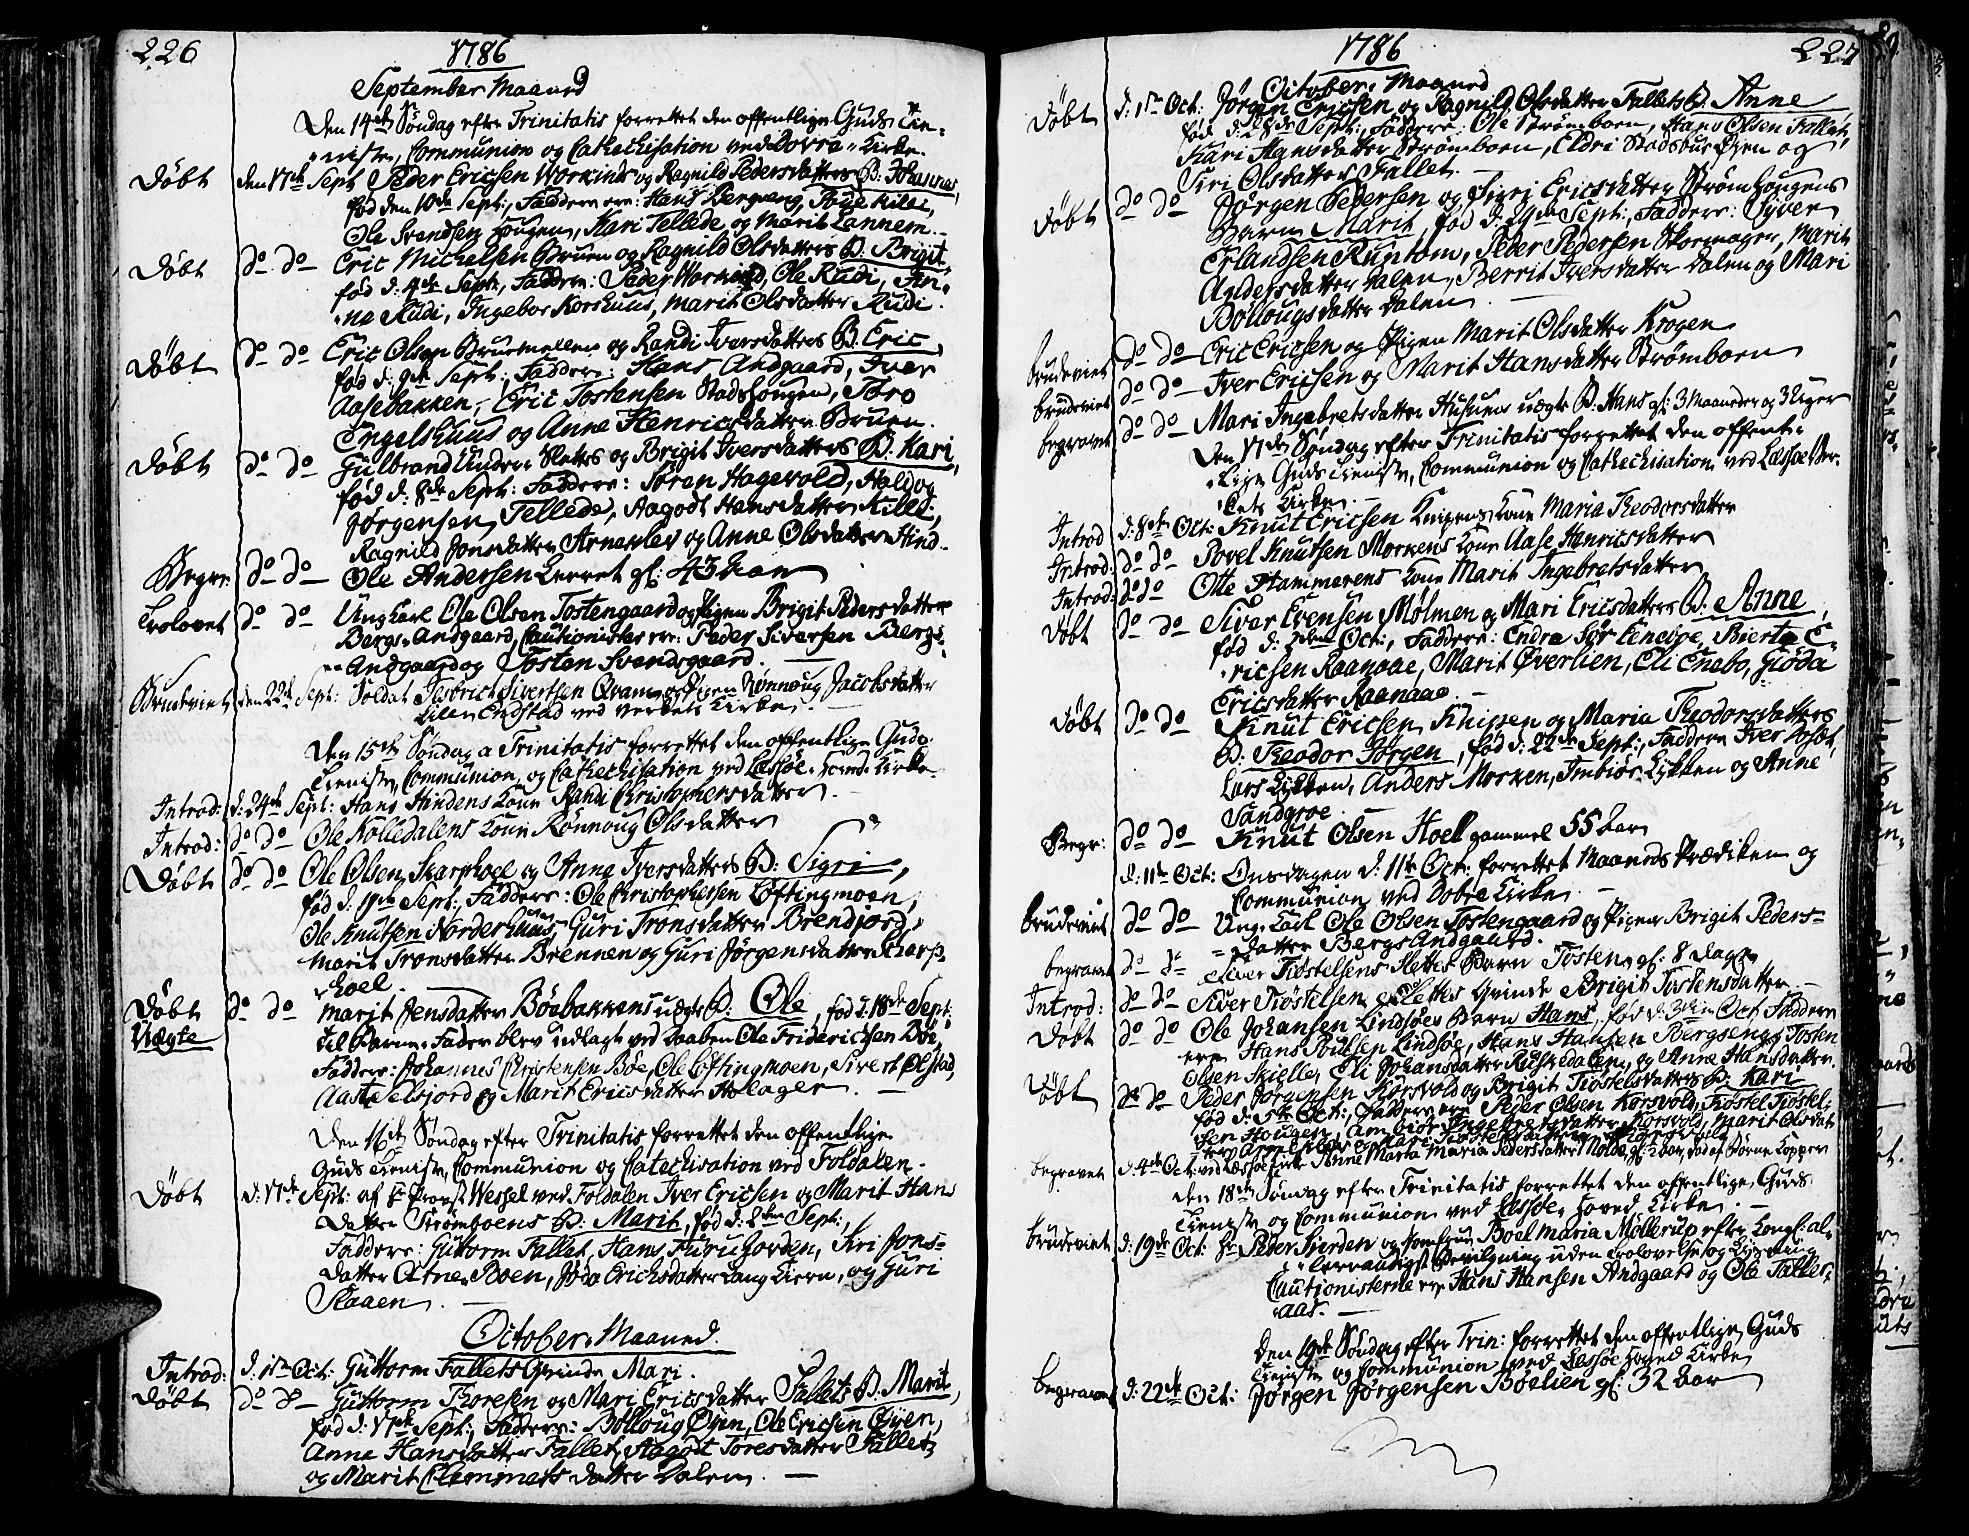 226
1786
September Maaned
Den 14de Søndag efter Trinitatis forrettet den offentlige Guds Tie-
niste, Communion og Cathechisation ved Dovre Kirke.
Døbt den 17de Sept Peder Ericsen Workinds og Ragnild Pedersdatters B. Johannes,
fød den 10de Sept:, Faddere ere: Hans Bergseng,
Ole Svendsen Hougen, Kari Tellede og Marit Lannem.
Døbt do do Eric Michelsen Bruen og Ragnild Olsdatters B. Brigit
fød d: 4de Sept:, Faddere: Peder Workind, Ole Rudi, An-
ne Rudi, Ingebor Korshuus, Marit Olsdatter Rudi.
Døbt do do Eric Olsen Bruemellem og Randi Iversdatters B. Eric,
fød d: 9de Sept:, Faddere: Hans Andgaard, Iver
Aasebakken, Eric Tostensen Stadshougen, Toro
Engelshuus og Anne Henricsdatter Bruen.
Døbt do do Gulbrand Under Slettes og Brigit Iversdatters B. Kari,
fød d: 8de Sept: Faddere: Søren Hagevold, Haldog
Jørgensen Tellede, Aagodt Hansdatter Kille,
Ragnild Jonsdatter Arneklev og Anne Olsdatter Hind.
Begr: do do Ole Andersen Lerret gl: 43 Aar
Trolovet do do Ung Karl Ole Olsen Tostengaard og Pigen Brigit Pedersdatter
Bergs-Andgaard, Cautionister ere: Peder Siversen Bergs-
Andgaard og Tosten Svendsgaard.
Brudeviet den 22de Sept: Soldat Siversen Qvam og Pigen Rønnoug Jacobsdatter
Lille Endstad ved Verkets Kirke
Den 15de Søndag a Trinitatis forrettet den offentlige Guds
Tieniste, Communion og Cathechisation ved Lessøe Hoved Kirke.
Introd: d: 24de Sept: Hans Hindens Kone Randi Christophersdatter.
Introd: do do Ole Kolledalens Kone Rønnoug Olsdatter
Døbt do do Ole Olsen Skarphoel og Anne Iversdatters B: Sigri,
fød d: 11de Sept:, Faddere: Ole Christophersen Løftingmoen,
Ole Knutsen Norderhuus, Guri Tronsdatter Brendjord,
Marit Tronsdatter Brennen og Guri Jørgensdatter Skarp-
hoel.
Døbt do do Marit Jensdatter Bøebakkens uægte B: Ole, fød d: 18de Sept:
Uægte til Barne-Fader blev udlagt ved Daaben Ole Friderichsen Bøe,
Faddere: Johannes Christensen Bøe, Ole Løftingmoen, Sivert Ølstad,
Aaste Selsjord og Marit Ericsdatter Holager.
Den 16de Søndag efter Trinitatis forrettet den offentlige
Guds Tieniste, Communion og Catechisation ved Foldalen.
Døbt d: 17de Sept: af Hr Provst Wessel ved Foldalen Iver Ericsen og Marit Hans
datter Strømboens B: Marit, fød d: 2den Sept:,
Faddere: Guttorm Fallet, Hans Furuhovden, Siri Jons-
datter Atne-Boen, Jøda Erichsdatter Langkiern, og Guri
Kaaen.
October Maaned.
Introd: d: 1ste Oct: Guttorm Fallets Qvinde Mari.
Døbt do do Guttorm Thoresen og Mari Ericsdatter Fallets B. Marit,
fød d: 17de Sept:, Faddere: Bolloug Øyen, Ole Ericsen Øyen,
Anne Hansdatter Fallet, Aagodt Toresdatter Fallet
og Marit Clemmetsdatter Dalen.
1786
227
October Maaned
Døbt d: 1ste Oct: Jørgen Ericsen og Ragnild Olsdatter Fallets B. Anne,
fød d: 28de Sept:, Faddere: Ole Strømboen, Hans Olsen Fallet,
Kari Hansdatter Strømboen, Eldri Stadsbuøyen og
Siri Olsdatter Fallet.
Døbt do do Jørgen Pedersen og Sigri Ericsdatter Strømhougens
Barn Marit, fød d: 24de Sept:, Faddere: Syver
Erlandsen Ruptom, Peder Pedersen Skomager, Marit
Andersdatter Dalen, Berrit Iversdatter Dalen og Mari
Bollougsdatter Dalen.
Brudeviet do do Eric Ericsen og Pigen Marit Olsdatter Krogen
Brudeviet do do Iver Ericsen og Marit Hansdatter Strømboen
begravet do do Mari Ingebretsdatter Husums uægte B: Hans gl: 3 Maaneder og 3 Uger
Den 17de Søndag efter Trinitatis forrettet den offent-
lige Guds Tieniste, Communion og Cathechisation ved Læssøe Ver-
kets Kirke.
Introd d: 8de Oct: Knut Ericsen Knipens Kone Maria Theodorsdatter
Introd: do do Povel Knutsen Morkens Kone Aase Hanricsdatter
Introd: do do Otte Hammerens Kone Marit Ingebretsdatter
Døbt do do Siver Evensen Mølmen og Mari Ericsdatters B: Anne,
fød d: 2den Oct:, Faddere: Endre Sør Eneboe, Bierte E-
ricsen Raanaae, Marit Øverlien, Eli Enebo, Giøda
Ericsdatter Raanaae.
Døbt do do Knut Ericsen Knipen og Maria Theodorsdatters
B: Theodor Jørgen, fød d: 22de Sept:, Faddere Iver
Lars Lykken, Anders Morken, Imbiør Lykken og Anne
Sandgroe.
Begr: do do Knut Olsen Hoel gammel 55 Aar
d: 11te Oct: Onsdagen d: 11te Oct: forrettet Maaneds Prædiken og
Communion ved Dovre Kirke.
Brudeviet do do Ung-Karl Ole Olsen Tostengaard og Pigen Brigit Peders-
datter BergsAndgaard.
begravet do do Siver Tiøstelsens Slettes Barn Tosten gl: 8 dage
Introd: do do Siver Tiøstelsen Slettes Qvinde Brigit Tostensdatter
Døbt do do Ole Johansen Lindsøes Barn Hans, fød d: Oct Faddere
ere Hans Poulsen Lindsøe, Hans Hansen Bergseng, Tosten
Olsen Skielle, Eli Johansdatter Rustedalen og Anne Hansdatter
Døbt do do Peder Jørgensen Korsvold og Brigit Tiøstelsdatters B. Kari
fød d: 5te Oct:, Faddere ere Peder Olsen Korsvold, Tiøstel Tiøstel-
sen Hougen, Ambiør Ingebretsdatter Korsvold, Marit Olsdat
begravet d: 4de Oct: ved Læssøe Kirke Anne Marta Maria Pedersdatter Molde, gl: 2 Aar, død af Børne Kopper
Den 18de Søndag efter Trinitatis forrettet den offentlige Guds
Tieniste og Communion ved Lessøe Hoved Kirke.
Brudeviet d: 19de Oct: Hr Peder Hierden og Jomfrue Boel Maria Møllerup efter Kongl: al-
lernaadigst Bevilgning uden Trolovelse og Lysning
Cautionisterne ere Hans Hansen Andgaard og Ole Taller-
aas.
Den 19de Søndag efter Trin: forrettet den offentlige Guds
Tieniste og Communion ved Lessøe Hoved Kirke
begravet d: 22de Oct: Jørgen Jørgensen Bøelien gl: 32 Aar